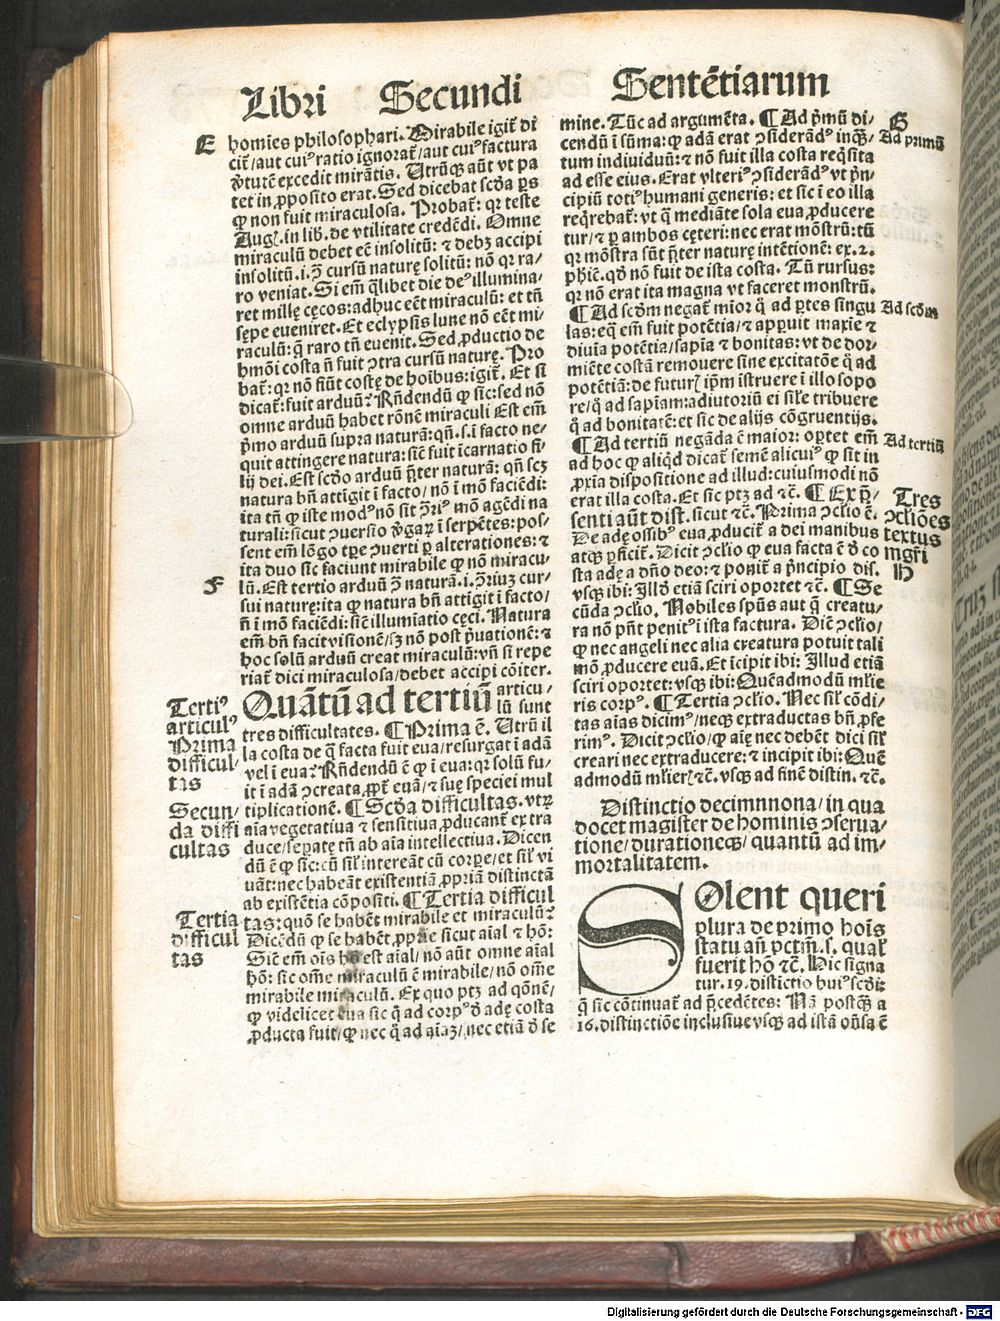 Libri Secundi Sentētiarum
E
homīes philosophari. Mirabile igit̄ di
cit̄/aut cuiꝰ ratio ignorat̄/aut cuiꝰ factura
excedit mirātis. Utrūqꝫ aūt vt pa
tet in ꝓposito erat. Sed dicebat scd̄a ꝑs
ꝙ non fuit miraculosa. Probat̄: qꝛ teste
Aug. in lib. de vtilitate credēdi. Omne
miraculū debet eē insolitū: ⁊ debꝫ accipi
insolitū .i. ꝯ̄ cursū naturę solitū: nō qꝛ ra/
ro veniat. Si em̄ q̄libet die deꝰ illumina/
ret mille cęcos: adhuc eēt miraculū: et tn̄
sępe eueniret. Et eclypsis lune nō eēt mi/
raculū: q̄ raro tn̄ euenit. Sed ꝓductio de
hmōi costa n̄ fuit ꝯtra cursū naturę. Pro
bat̄: qꝛ nō fiūt costę de hoībus: igit̄. Et si
dicat̄: fuit arduū? Rn̄dendū ꝙ sic: sed nō
omne arduū habet rōnē miraculi Est em̄
p̄mo arduū supra naturā: qn̄ .s. i facto ne/
quit attingere natura: sic̄ fuit icarnatio fi/
lij dei. Est scd̄o arduū p̄ter naturā: qn̄ scꝫ
natura bn̄ attigit i facto/ nō i mō faciēdi:
ita tn̄ ꝙ iste modꝰ nō sit ꝯ̄riꝰ mō agēdi na
turali: sicut ꝯuersio ꝟgaꝝ i serpētes: pos/
sent em̄ lōgo tꝑe ꝯuerti ꝑ alterationes: ⁊
ita duo sic faciunt mirabile ꝙ nō miracu/
F
lū. Est tertio arduū ꝯ̄ naturā .i. ꝯ̄riuꝫ cur/
sui naturę: ita ꝙ natura bn̄ attigit i facto/
n̄ i mō faciēdi: sic̄ illumiatio cęci. Natura
em̄ bn̄ facit visionē/ sꝫ nō post p̄uationē: ⁊
hoc solū arduū creat miraculū: vn̄ si repe
riat̄ dici miraculosa/debet accipi cōiter.
Quātū ad tertiū articu/
lū sunt
Tertiꝰ
articulꝰ
Prima
difficul/
tas
tres difficultates. ¶ Prima ē. Utrū il
la costa de q̄ facta fuit eua/resurgat i adā
vel i eua? Rn̄dendū ē ꝙ i eua: qꝛ solū fu/
it i adā ꝯcreata ꝓpt̄ euā/ ⁊ suę speciei mul
Secun/
da diffi
cultas
tiplicationē. ¶ Scd̄a difficultas. vtꝝ
aīa vegetatiua ⁊ sensitiua ꝓducant̄ extra
duce/sepate tn̄ ab aīa intellectiua. Dicen
dū ē ꝙ sic: cū sil̄ intereāt cū corꝑe/et sil̄ vi
uāt: nec habeāt existentiā ꝓpriā distinctā
ab existētia cōpositi. ¶ Tertia difficul
Tertia
difficul
tas
tas: quō se habēt mirabile et miraculū?
Dicēdū ꝙ se habēt ꝓpprie sicut aīal ⁊ hō:
Sic̄ em̄ oīs hō est aīal/ nō aūt omne aīal
hō: sic om̄e miraculū ē mirabile/ nō om̄e
mirabile miraculū. Ex quo ptꝫ ad qōnē/
ꝙ videlicet eua sic q̄ ad corpꝰ ꝺ̄ adę costa
ꝓducta fuit/ ꝙ nec q̄ ad aīaꝫ/ nec etiā ꝺ̄ se
mine. Tūc ad argumēta. ¶ Ad p̄mū di/
G
Ad primū
cendū i sūma: ꝙ adā erat ꝯsiderādꝰ inqꝫ/
tum indiuiduū: ⁊ nō fuit illa costa reqſita
ad esse eius. Erat vlteriꝰ ꝯsiderādꝰ vt p̄n/
cipiū totiꝰ humani generis: et sic i eo illa
req̄rebat̄: vt q̄ mediāte sola eua ꝓducere
tur/ ⁊ ꝑ ambos cęteri: nec erat mōstrū: tū
qꝛ mōstra sūt p̄ter naturę intētionē: ex .2.
phic̄. qd̄ nō fuit de ista costa. Tū rursus:
qꝛ nō erat ita magna vt faceret monstrū.
¶ Ad scd̄m negat̄ mior q̄ ad ꝑtes singu
Ad scd̄m
las: eq̄ em̄ fuit potētia/ ⁊ apparuit maxīe ⁊
diuīa potētia/sapīa ⁊ bonitas: vt de dor/
miēte costā remouere sine excitatōe q̄ ad
potētiā: de futurꝭ ip̄m istruere i illo sopo
re/ q̄ ad sapīam: adiutoriū ei sil̄e tribuere
q̄ ad bonitatē: et sic de alijs cōgruentijs.
¶ Ad tertiū negāda ē maior: oꝑtet em̄
Ad tertiū
ad hoc ꝙ aliqd̄ dicat̄ semē alicuiꝰ ꝙ sit in
ꝓxia dispositione ad illud: cuiusmodi nō
erat illa costa. Et sic ptꝫ ad ⁊c̄. ¶ Ex p̄/
Tres
ꝯcliōes
textus
mgr̄i
H
senti aūt dist. sicut ⁊c̄. Prima ꝯclio ē.
De adę ossibꝰ eua ꝓducit̄ a dei manibus
atqꝫ ꝑficit̄. Dicit ꝯclio ꝙ eua facta ē ꝺ̄ co
sta adę a dn̄o deo: ⁊ ponit̄ a p̄ncipio dis.
vsqꝫ ibi: Illd̄ etiā sciri oportet ⁊c̄. ¶ Se
cūda ꝯclio. Nobiles spūs aut q̄ creatu/
ra nō pn̄t penitꝰ i ista factura. Dic̄ ꝯclio/
ꝙ nec angeli nec alia creatura potuit tali
mō ꝓducere euā. Et icipit ibi: Illud etiā
sciri oportet: vsqꝫ ibi: Quēadmodū mīie
ris corpꝰ. ¶ Tertia ꝯclio. Nec sil̄ cōdi/
tas aīas dicimꝰ/ neqꝫ extraductas bn̄ ꝓfe
rimꝰ. Dicit ꝯclio/ ꝙ aīę nec debēt dici sil̄
creari nec extraducere: ⁊ incipit ibi: Quē
admodū mīier̄ ⁊c̄. vsqꝫ ad finē distin. ⁊c̄.
Distinctio decimnnona/ in qua
docet magister de hominis ꝯserua/
tione/ durationeqꝫ/ quantū ad im/
mortalitatem.
SOlent queri
plura de primo hoīs
statu an̄ pctm̄ .s. qual̄
fuerit hō ⁊c̄. Hic signa
tur .19. distictio huiꝰ scd̄i:
q̄ sic cōtinuat̄ ad p̄cedētes: Nā postqꝫ a
16. distinctiōe inclusiue vsqꝫ ad istā on̄sa ē
Digitalisierung gefördert durch die Deutsche Forschungsgemeinschaft - DFG